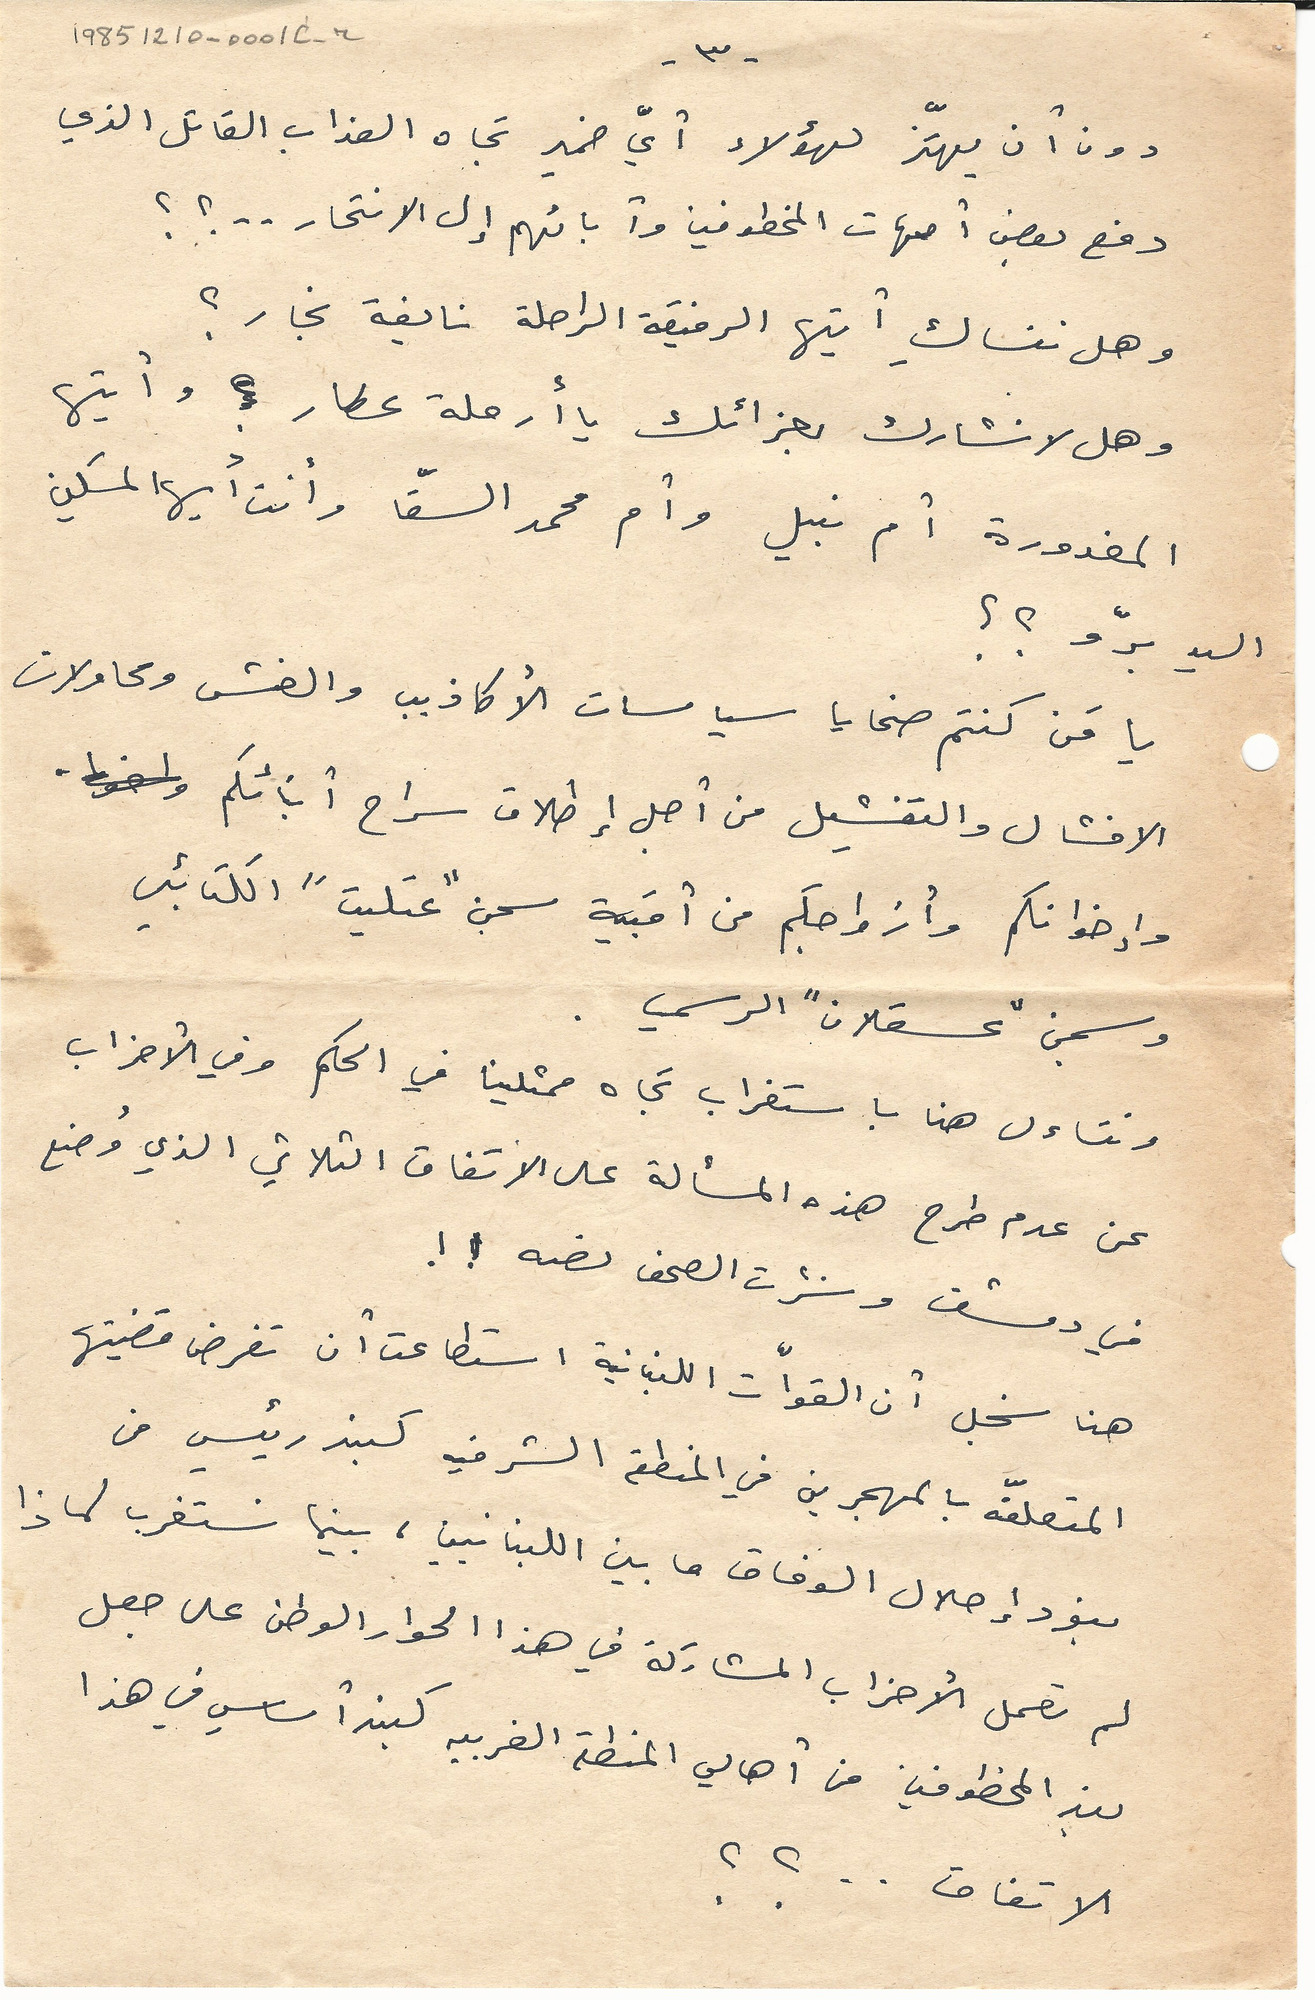 19851210-0001C-2
-٣-
دون أن يهتزّ لهؤلاء أيّ ضمير تجاه العذاب القاتل الذي
دفع بعض أمهات المخطوفين وآبائهم إلى الانتحار ..؟؟
وهل ننساكِ أيتها الرفيقة الراحلة نايفة نجار ؟
وهل لا نشارك بعزائك يا أرملة عطار ؟ وأيتها
المغدورة أم نبيل وأم محمد السقّا وأنت أيها المسكين
السيد برّو ؟؟
يا مَن كنتم ضحايا سياسات الأكاذيب والغش ومحاولات
الافشال والتفشيل من أجل إطلاق سراح أبنائكم
وإخوانكم وأزواجكم من أقبية سجن "عتليت" الكتائبي
وسجن "عسقلان" الرسمي .
ونتساءل هنا باستغراب تجاه ممثلينا في الحكم وفي الأحزاب
عن عدم طرح هذه المسألة على الاتفاق الثلاثي الذي وُضع
في دمشق ونشرت الصحف نصه !!
هنا نسجل أن القوّات اللبنانية استطاعت أن تفرض قضيتها
المتعلقّة بالمهجرين في المنطقة الشرقيه كبند رئيسي من
بنود إحلال الوفاق ما بين اللبنانيين، بينما نستغرب لماذا
لم تعمل الأحزاب المشاركة في هذا الحوار الوطني على جعل
بند المخطوفين من أهالي المنطقة الغربيه كبند أساسي في هذا
الاتفاق ..؟؟